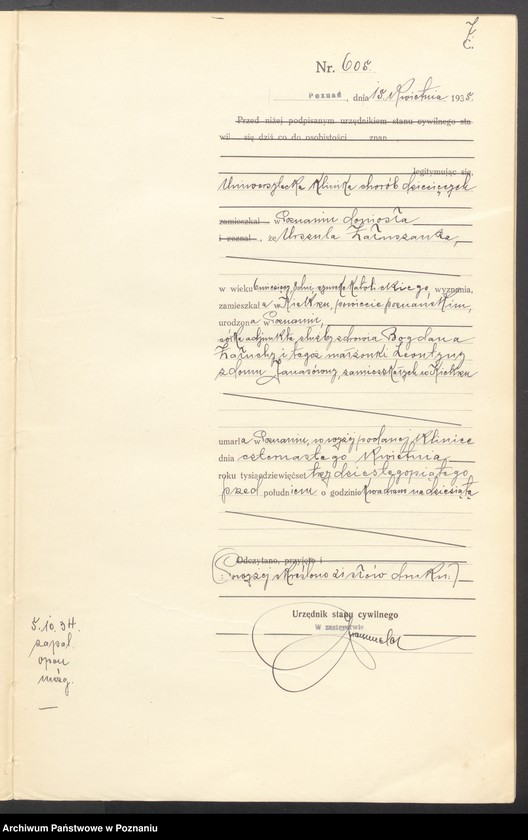 7
c.
Nr. 605.
Poznań, dnia 15. Kwietnia 1935.
Przed niżej podpisanym urzędnikiem stanu cywilnego sta
wił się dziś co do osobistości znan
legitymując się
Uniwersytecka Klinika chorób dziecięcych
zamieszkał w Poznaniu doniosła
i zeznał, że Urszula Załuszanka,
w wieku 6 miesięcy, rzymsko katolickiego wyznania,
zamieszkała w Kiekrzu, powiecie poznańskim,
urodzona w Poznaniu,
córka adjunkta służby zdrowia Bogdana
Załuchy i tegoż małżonki Leontyny
z domu zamieszkałych w Kiekrzu
umarła w Poznaniu, w wyżej podanej Klinice
dnia czternastego Kwietnia
roku tysiąc dziewięćset trzydziestego piątego
przed południem o godzinie kwadrans na dziesiątą
Odczytano, przyjęto i
(: Powyżej skreślono 21 słów druku :)
Urzędnik stanu cywilnego
W zastępstwie
5.10.34.
zapal.
opon
mózg.
Archiwum Państwowe w Poznaniu